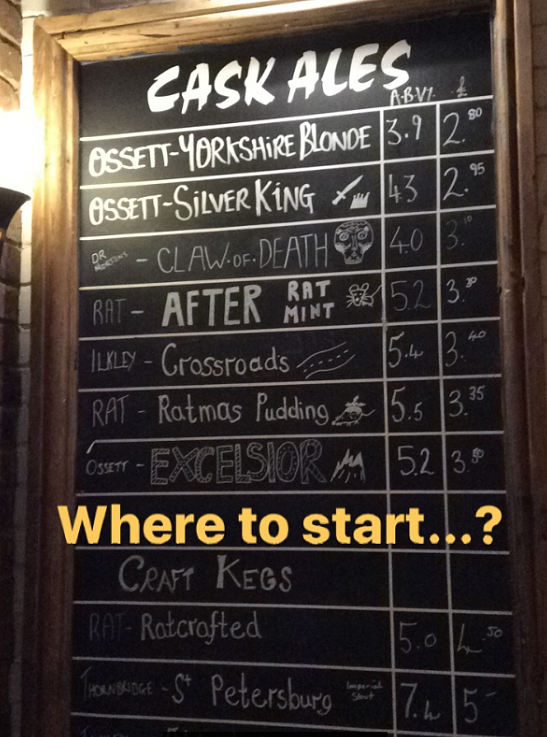 CASK ALES
A.B.V% £
OSSETT-YORKSHIRE BLONDE 3.9 2.80
OSSETT-SILVER KING 4.3 2.95
DR MORTON'S - CLAW.OF.DEATH 4.0 3.10
RAT - AFTER RAT MINT 5.2 3.
ILKLEY - Crossroads 5.4 3.40
RAT - Ratmas Pudding 5.5 3.35
OSSETT - EXCELSIOR 5.2 3.
Where to start...?
CRAFT KEGS
RAT- Ratcrafted 5.0 4.50
THORNBRIDGE - St Petersburg Imperial Stout 7.4 5-